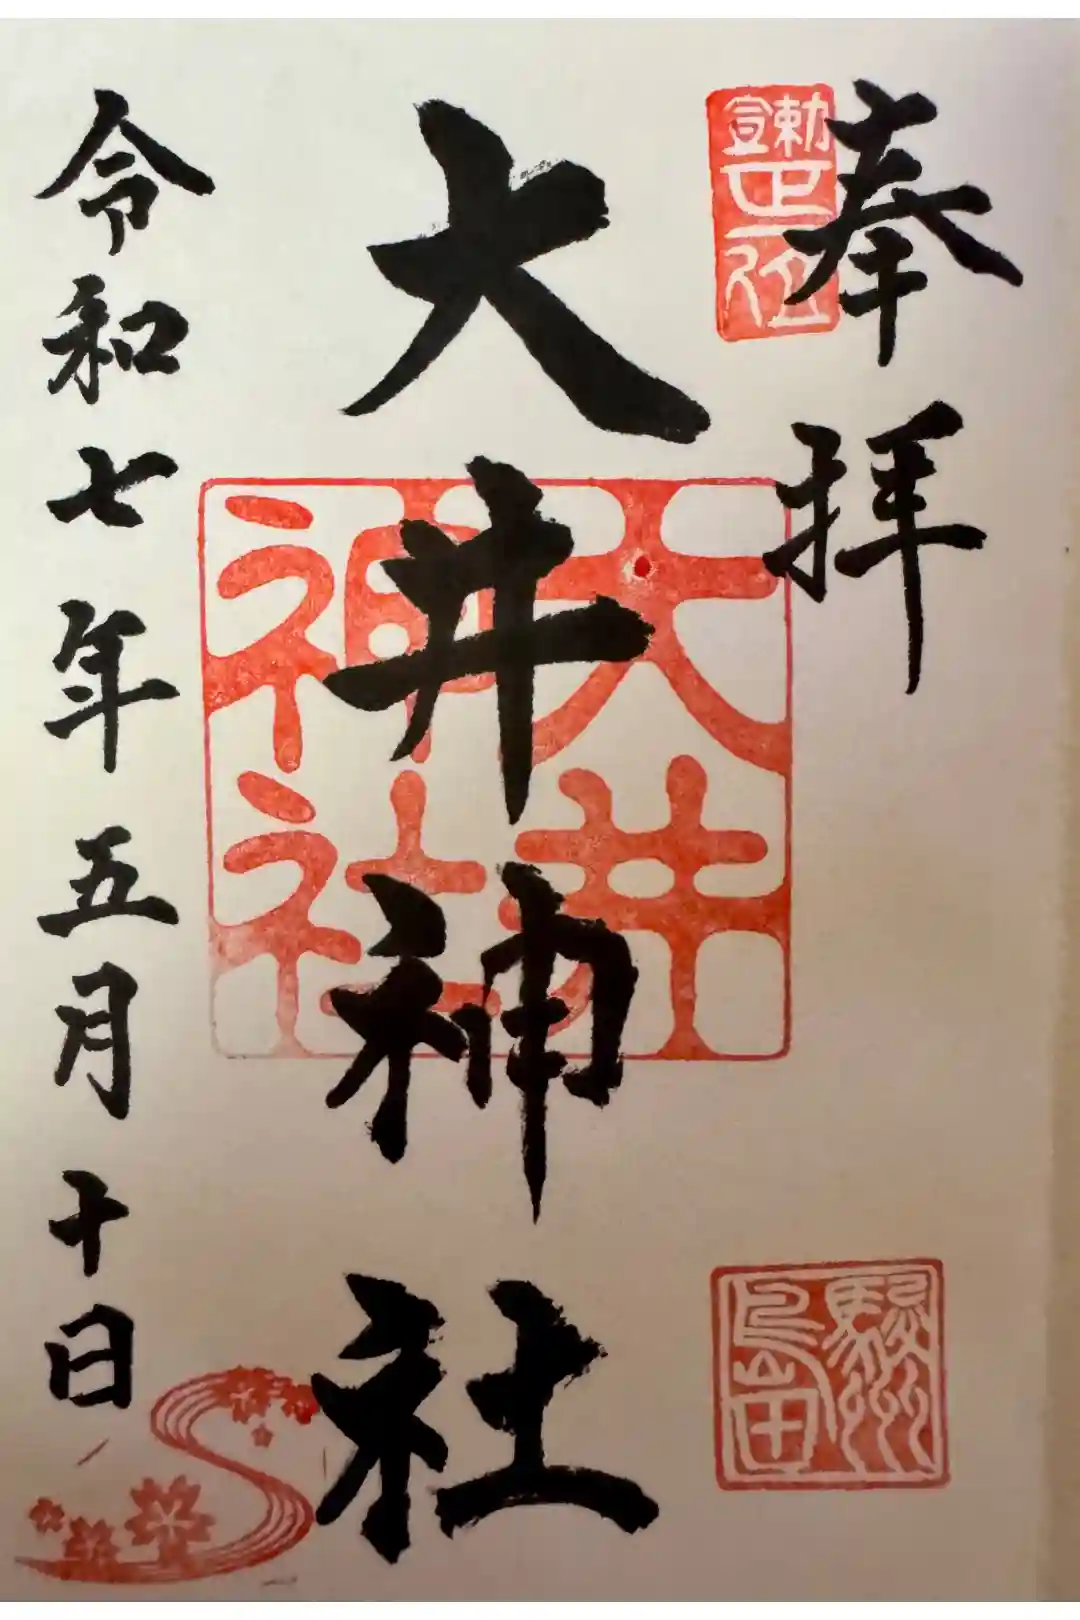 奉拝
勅宣
正一位
大井神社
大井
神社
駿州
島田
令和七年五月十日